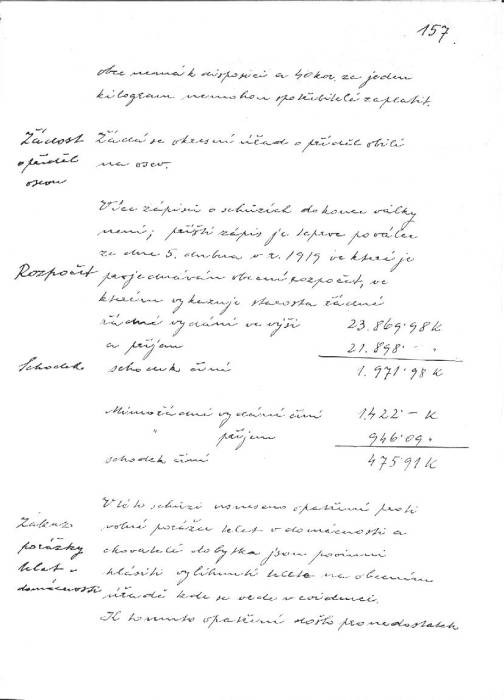 157.
obec nemá k disposici a 40 kor. za jeden
kilogram nemohou spotřebitelé zaplatit.
Žádost
o příděl
osevu
Žádá se okresní úřad o příděl obilí
na osev.
Více zápisů o schůzích do konce války
není; příští zápis je teprve po válce
ze dne 5. dubna v r. 1919 ve které je
Rozpočet
projednáván obecní rozpočet, ve
kterém vykazuje starosta řádné
řádné vydání ve výši 23.869·98 K
a příjem 21.898· - ·
Schodek
schodek činí 1.971·98 K
Mimořádné vydání činí 1422 - K
" příjem 946·09 ·
schodek činí 475·91 K
Zákaz
porážky
telat v
domácnosti
V této schůzi usneseno opatření proti
volné porážce telat v domácnosti a
chovatelé dobytka jsou povinni
hlásiti vylihnutí telete na obecním
úřadě kde se vede v evidenci.
K tomuto opatření došlo pro nedostatek